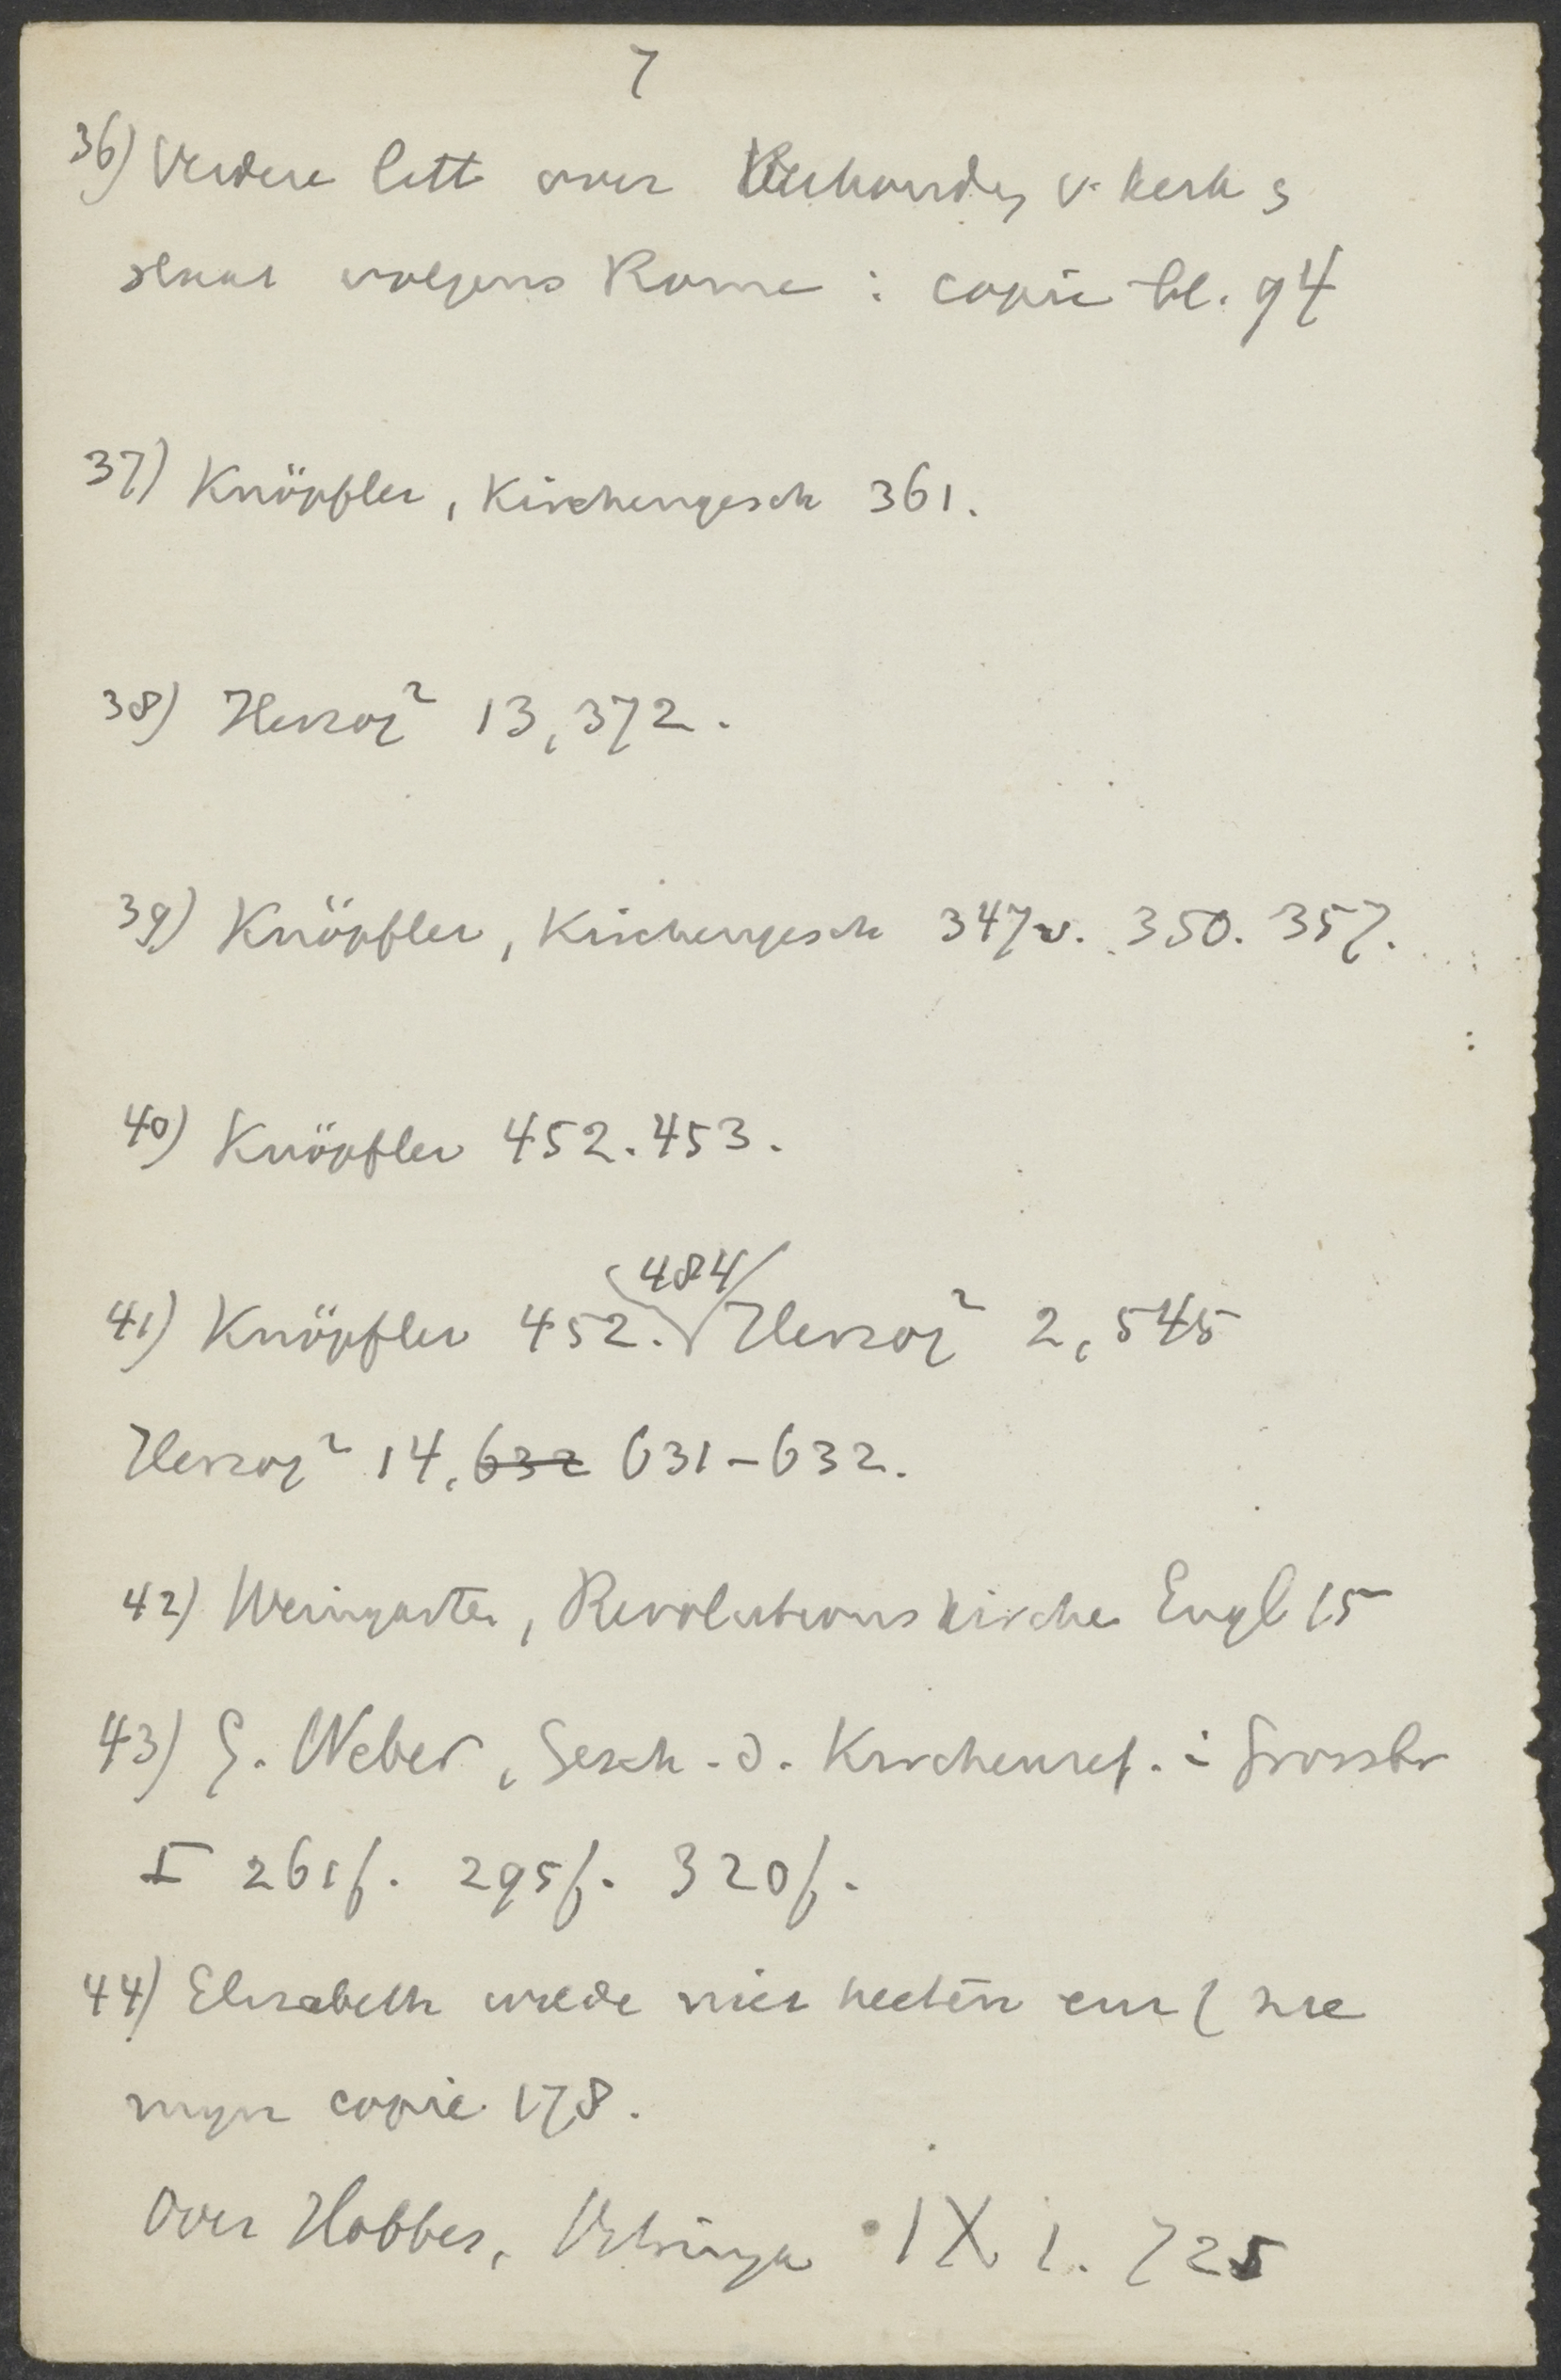 7
36) Verdere litt over Verhoudg v. kerk &
staat volgens Rome : copie bl. 94
37) Knöpfler, Kirchengesch 361.
38) Herzog² 13,372.
39) Knöpfler, Kirchengesch 347v. 350. 357.
40) Knöpfler 452.453.
484
41) Knöpfler 452. Herzog² 2,545
Herzog² 14,632 631-632.
42) Weingarten, Revolutionskirchen Engl 15
43) G. Weber, Gesch. d. Kirchenref. i Grossbr
I 261f. 295f. 320f.
44) Elisabeth wilde niet heeten zie
mijn copie 178.
Over Hobbes, IX 1. 725